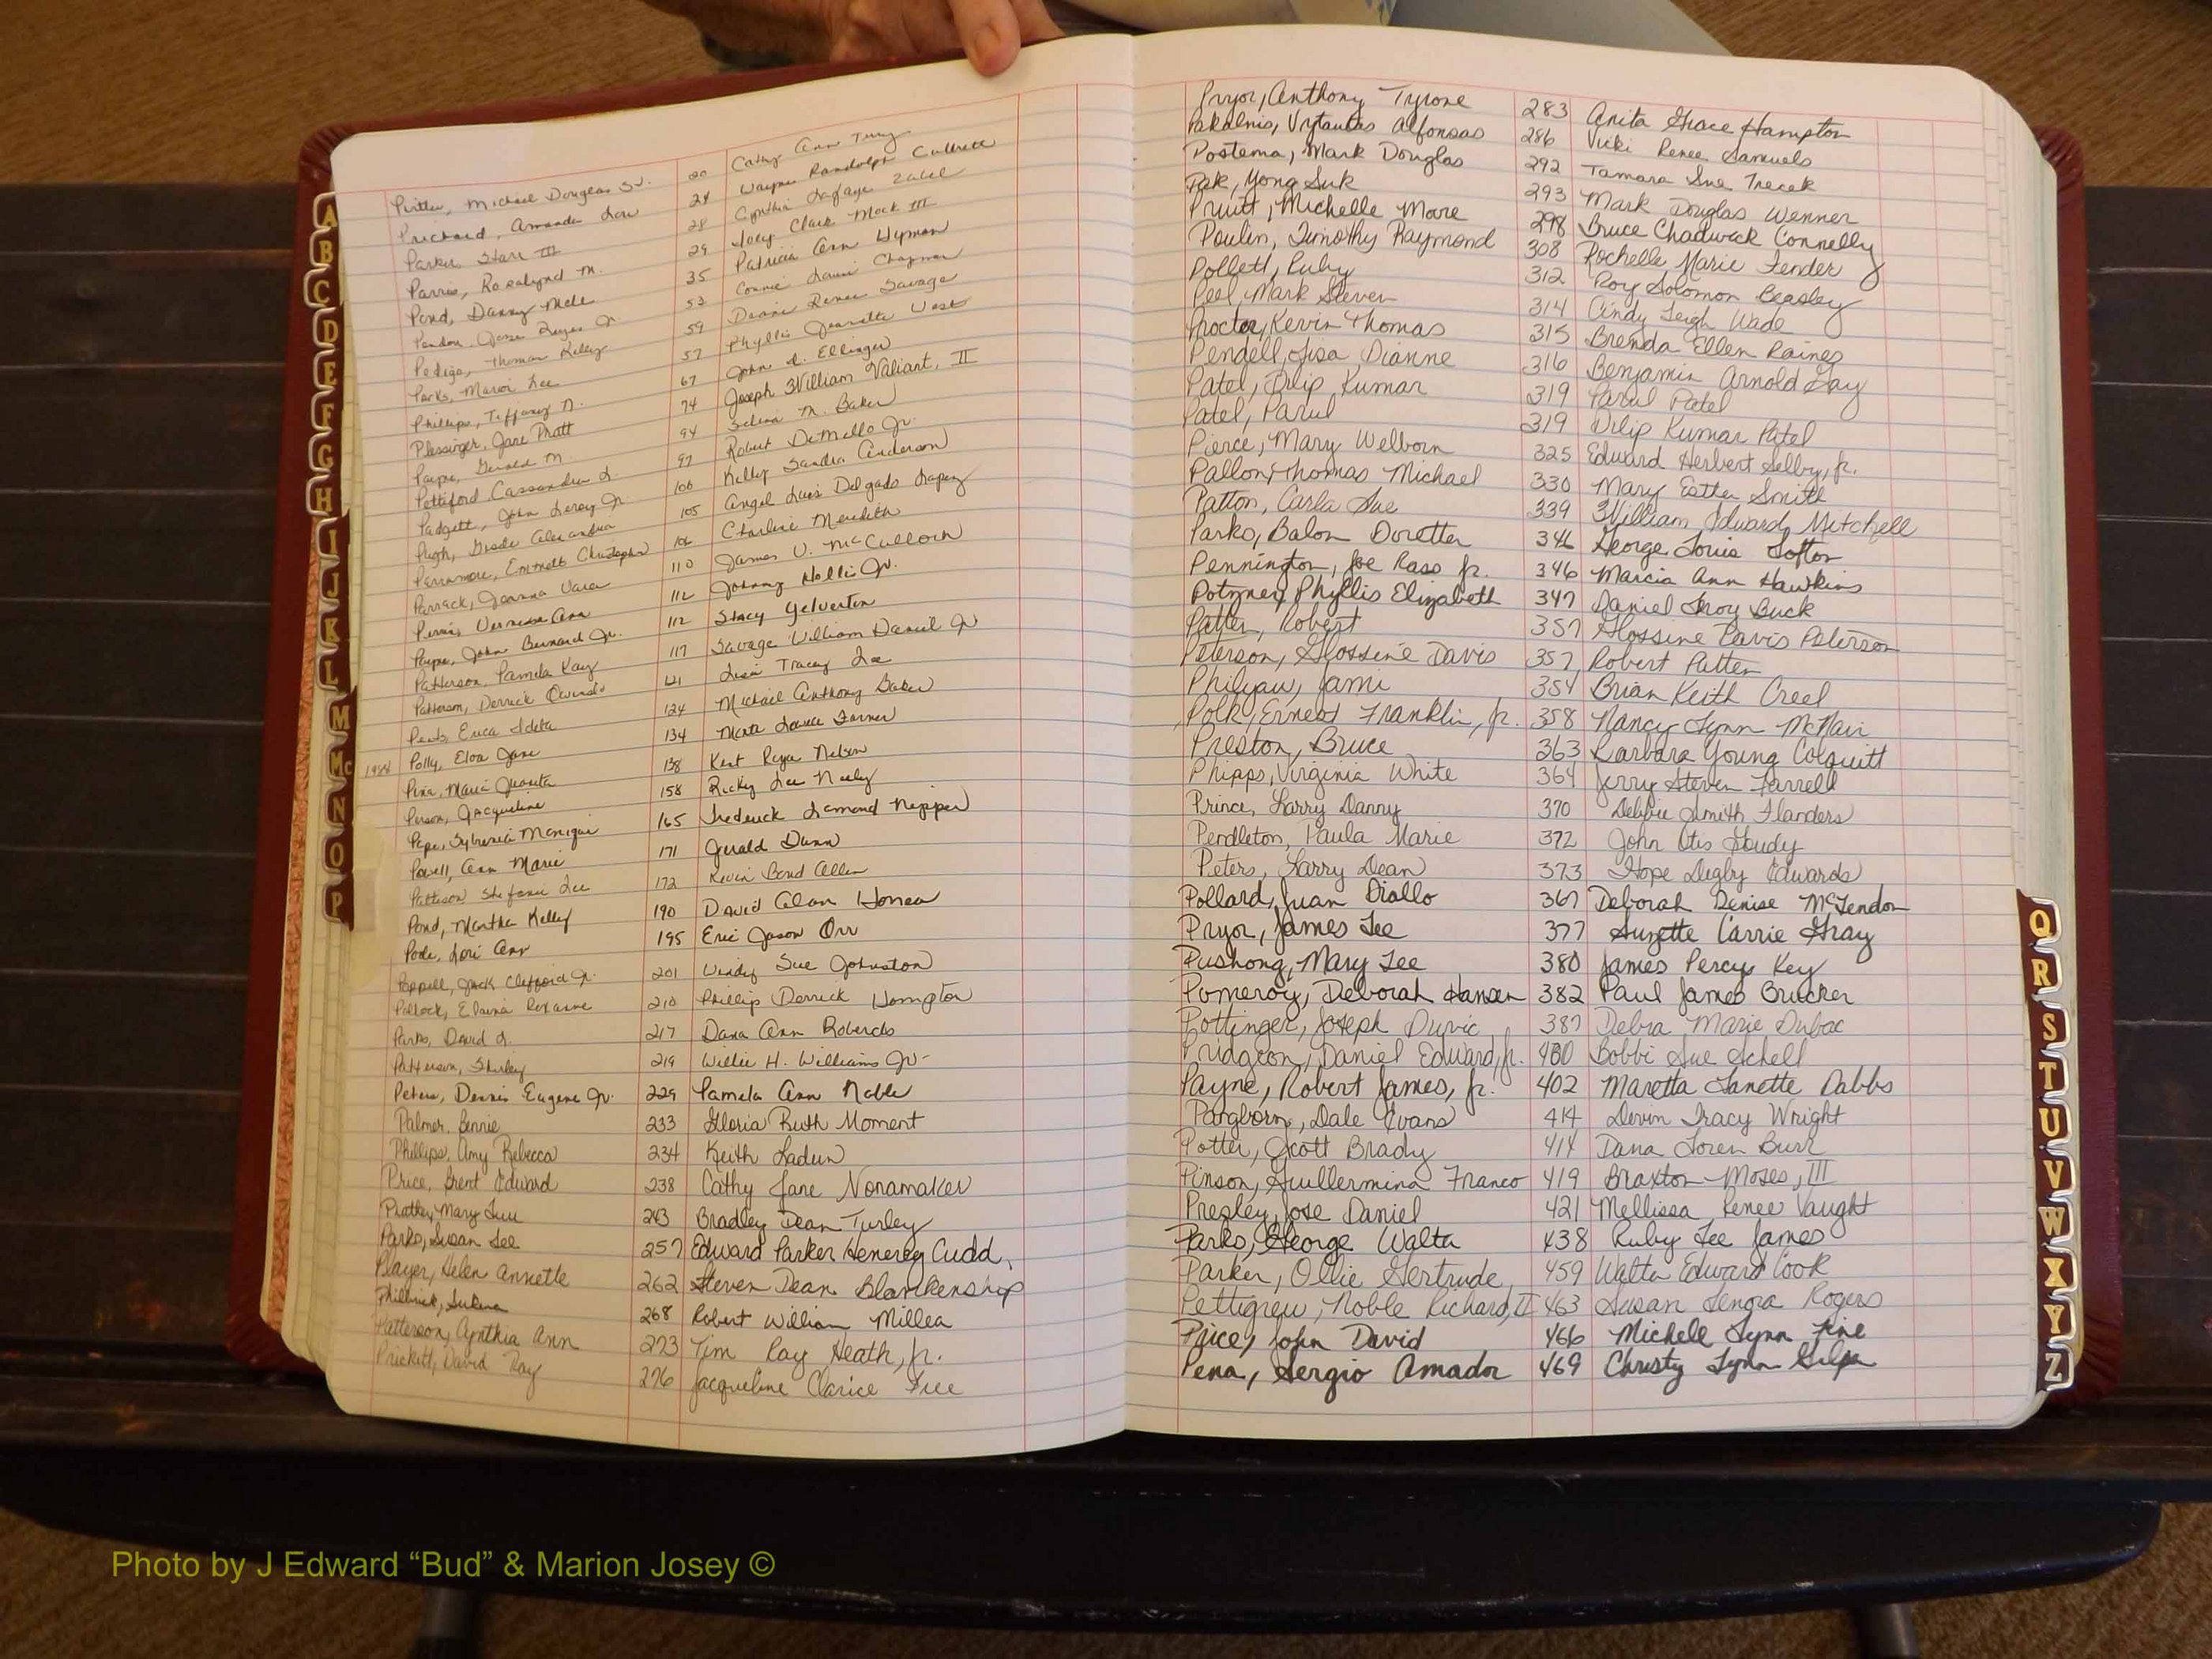 Pittler, Michael Douglas Sr. 20 Cathy Ann Tracy
Prichard, Amanda Lou 24 Wayne Randolph Cullrett
Parker, Starr III 28 Cynthia LaFaye Zabel
Parris, Rosalynd M. 29 Joey Clark Mock III
Pond, Danny Mele 35 Patricia Ann Wyman
Jose Reyes Jr. 53 Connie Chapman
Pedigo, Thomas Kelly 59 Diane Renee Savage
Parks, Marvi Lee 57 Phyllis Jeanette West
Phillips, Tiffany D. 67 John L. Ellinger
Plessinger, Jane Pratt 74 Joseph William Valiant, II
Payne, Gerald M. 94 Selina M. Baker
Pettiford Cassandra L. 97 Robert DeMello Jr.
Padgett, John Leroy Jr. 100 Kelly Sandra Anderson
Pugh, Grade Alexandra 105 Angel Luis Delgado Lopez
Perramore, Emmett Christopher 106 Charlene Meredith
Parrack, Joanna Vara 110 James V. McCulloch
Perris, Vernessa Ann 112 Johnny Hollis Jr.
Payne, John Bernard Jr. 112 Stacy Yelverton
Patterson, Pamela Kay 117 Savage William Daniel Jr
Patterson, Derrick 121 Lisa Tracey Lee
Erica 124 Michael Anthony Baker
1988 Polly, Eloa Jane 134 Laura Farmer
Pina, Maria Juanita 138 Kent Roger Nelson
Person, Jacqueline 158 Ricky Lee Neely
Pope, Sylvenia Monique 165 Frederick Lamond Nipper
Powell, Ann Marie 171 Gerald Dunn
Pattison Stefanie Lee 172 Kevin Bond Allen
Pond, Martha Kelly 190 David Alan Honea
Poole, Lori Ann 195 Eric Jason Orr
Poppell, Jack Clifford Jr. 201 Windy Sue Johnston
Pollock, Elaina Roxanne 210 Phillip Derrick Hampton
Parks, David L. 217 Dana Ann Roberds
Patterson, Shirley 219 Willie H. Williams Jr.
Peters, Dennis Eugene Jr. 229 Pamela Ann Noble
Palmer, Bennie 233 Gloria Ruth Moment
Phillips, Amy Rebecca 234 Keith Ladun
Price, Brent Edward 238 Cathy Jane Nonamaker
Prather, Mary Sue 243 Bradley Dean Turley
Parks, Susan Lee 257 Edward Parker Henerey Cudd,
Player, Helen Annette 262 Steven Dean Blankenship
Philbrick, 268 Robert William Miller
Patterson, Cynthia Ann 273 Tim Ray Heath, Jr.
Prickett, David Ray 276 Jacqueline Clarice Free
Pryor, Anthony Tyrone 283 Anita Grace Hampton
Pakalnis, Vytautas Alfonsas 286 Vicki Renee Samuels
Postema, Mark Douglas 292 Tamara Sue Trecek
Pak, Yong Suk 293 Mark Douglas Wenner
Pruitt, Michelle Moore 298 Bruce Chadwick Connelly
Poulin, Timothy Raymond 308 Rochelle Marie Fender
Pollett, Ruby 312 Roy Solomon Beasley
Peel, Mark Steven 314 Cindy Leigh Wade
Procter, Kevin Thomas 315 Brenda Ellen Raines
Pendell, Lisa Dianne 316 Benjamin Arnold Gay
Patel, Dilip Kumar 319 Parul Patel
Patel, Parul 319 Dilip Kumar Patel
Pierce, Mary Welborn 325 Edward Herbert Selby, Jr.
Pallon, Thomas Michael 330 Mary Esther Smith
Patton, Carla Sue 339 William Edward Mitchell
Parks, Balon Doretter 346 George Louis Lofton
Pennington, Joe Ross Jr. 346 Marcia Ann Hawkins
Potzner, Phyllis Elizabeth 347 Daniel Troy Buck
Patten, Robert 357 Glossine Davis Peterson
Peterson, Glossine Davis 357 Robert Patten
Philyaw, Jami 354 Brian Keith Creel
Polk, Ernest Franklin, Jr. 358 Nancy Lynn McNair
Preston, Bruce 363 Barbara Young Colquitt
Phipps, Virginia White 364 Jerry Steven Farrell
Prince, Larry Danny 370 Debbie Smith Flanders
Pendleton, Paula Marie 372 John Otis Goudy
Peters, Larry Dean 373 Hope Digby Edwards
Pollard, Juan Diallo 367 Deborah Denise McLendon
Pryor, James Lee 377 Suzette Carrie Gray
Pushong, Mary Lee 380 James Percy Key
Pomeroy, Deborah Hansen 382 Paul James Brucker
Pottinger, Joseph Duric 387 Debra Marie Dubac
Pridgeon, Daniel Edward, Jr. 400 Bobbi Sue Schell
Payne, Robert James, Jr. 402 Maretta Lanette Dabbs
Pangborn, Dale Evans 414 Devin Tracy Wright
Potter, Scott Brady 414 Dana Loren Burr
Pinson, Guillermina Franco 419 Braxton Moses, III
Presley, Jose Daniel 421 Mellissa Renee Vaught
Parks, George Walta 438 Ruby Lee James
Parker, Ollie Gertrude 459 Walter Edward Cook
Pettigrew, Noble Richard, II 463 Susan Lenora Rogers
Price, John David 466 Michell Lynn Fine
Pena, Sergio Amador 469 Christy Lynn Gilpa
A
B
C
D
E
F
G
H
I
J
K
L
M
Mc
N
O
P
Q
R
S
T
U
V
W
X
Y
Z
Photo by J Edward “Bud” & Marion Josey ©